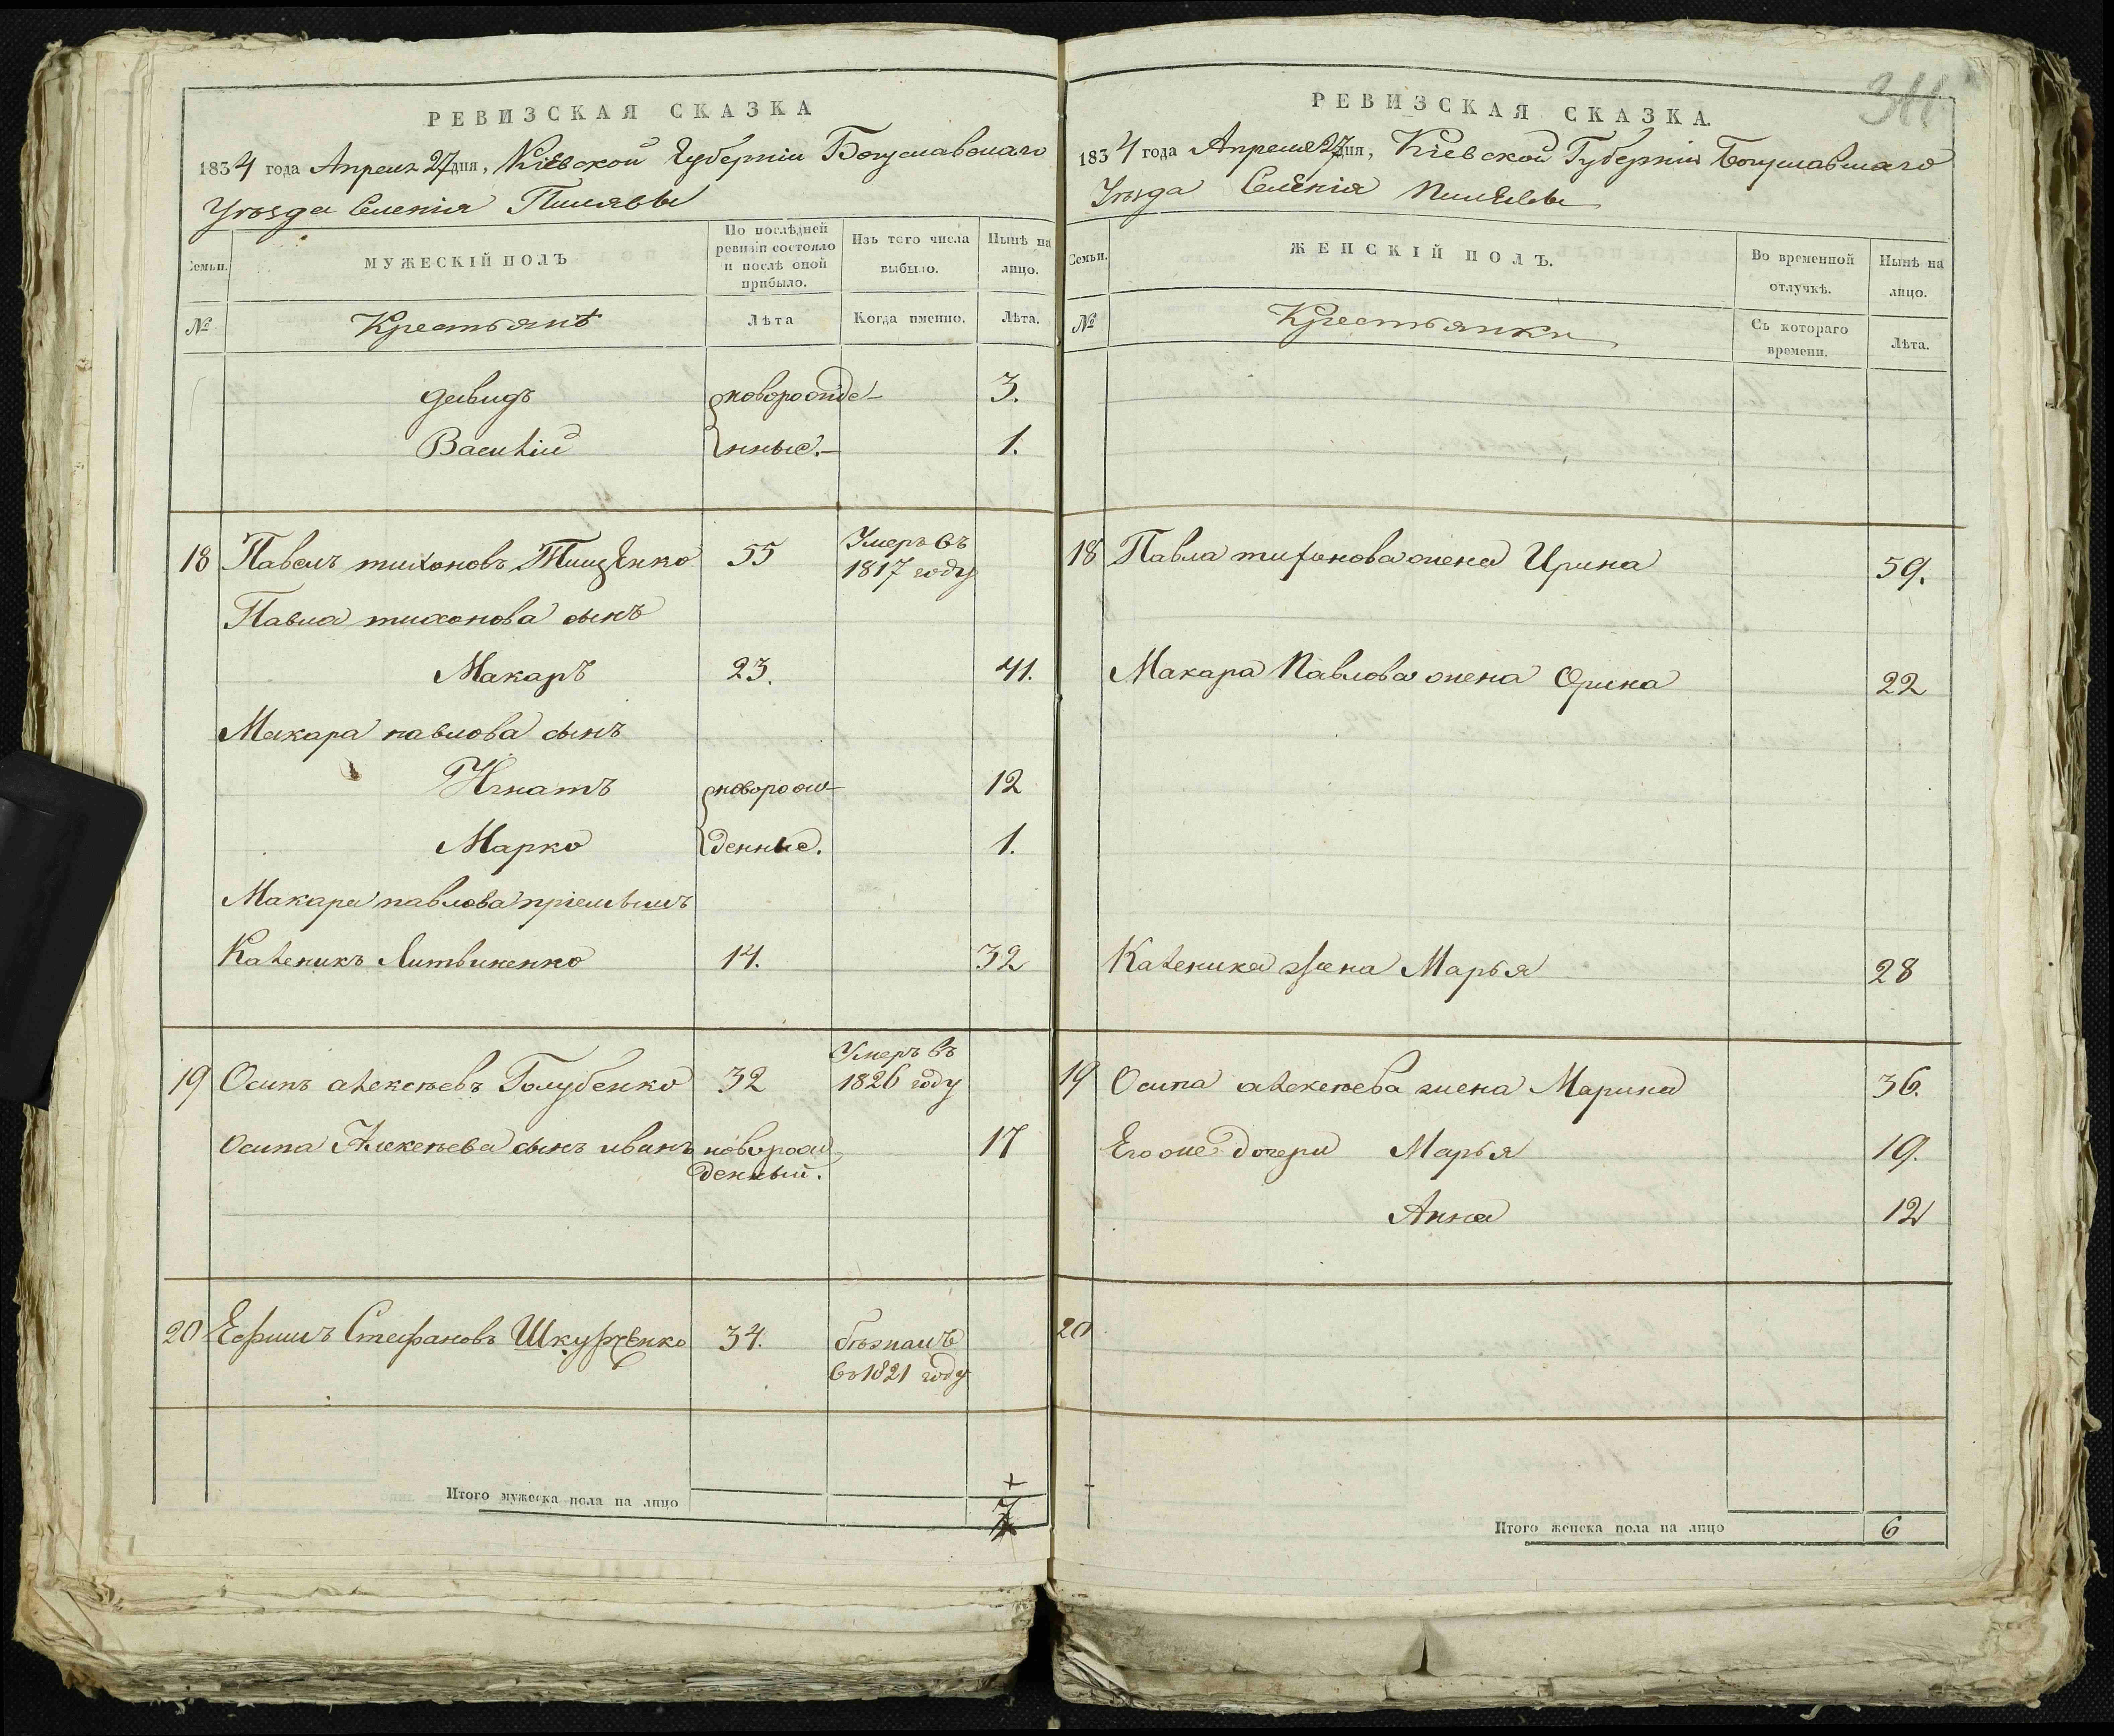 РЕВИЗСКАЯ СКАЗКА
1834 года Апреля 27 дня, Кіевской Губерніи Богуславскаго
Уѣзда Селенія Пилявы
Семьи.
МУЖЕСКІЙ ПОЛЪ
По послѣдней ревизіи состояло и послѣ оной прибыло.
Изъ того числа выбыло.
Нынѣ на лицо.
№
Крестьянѣ
Лѣта
Когда именно.
Лѣта.
Давидъ новорожде- 3.
Василій нные. 1.
18 Павелъ тихоновъ Тищенко 55 Умеръ въ 1817 году
Павла тихонова сынъ
Макаръ 23. 41.
Макара павлова сынъ
Игнатъ новорож- 12
Марко денные. 1.
Макара павлова пріемышъ
Каленикъ Литвиненко 14. 32
19 Осипъ алексѣевъ Голубенко 32 Умеръ въ 1826 году
Осипа Алексѣева сынъ иванъ новорож- 17
денный.
20 Ефимъ Стефановъ Шкурченко 34. бѣжалъ
въ 1821 году
Итого мужеска пола на лицо 7
311
РЕВИЗСКАЯ СКАЗКА.
1834 года Апреля 27 дня, Кіевской Губерніи Богуславскаго
Уѣзда Селенія Пилявы
Семьи.
ЖЕНСКІЙ ПОЛЪ.
Во временной отлучкѣ.
Нынѣ на лицо.
№
Крестьянки
Съ котораго времени.
Лѣта.
18 Павла тихонова жена Ирина 59.
Макара Павлова жена Орина 22
Каленика жена Марья 28
19 Осипа алексѣева жена Марина 36.
Его же дочери Марья 19.
Анна 12
20
Итого женска пола на лицо 6